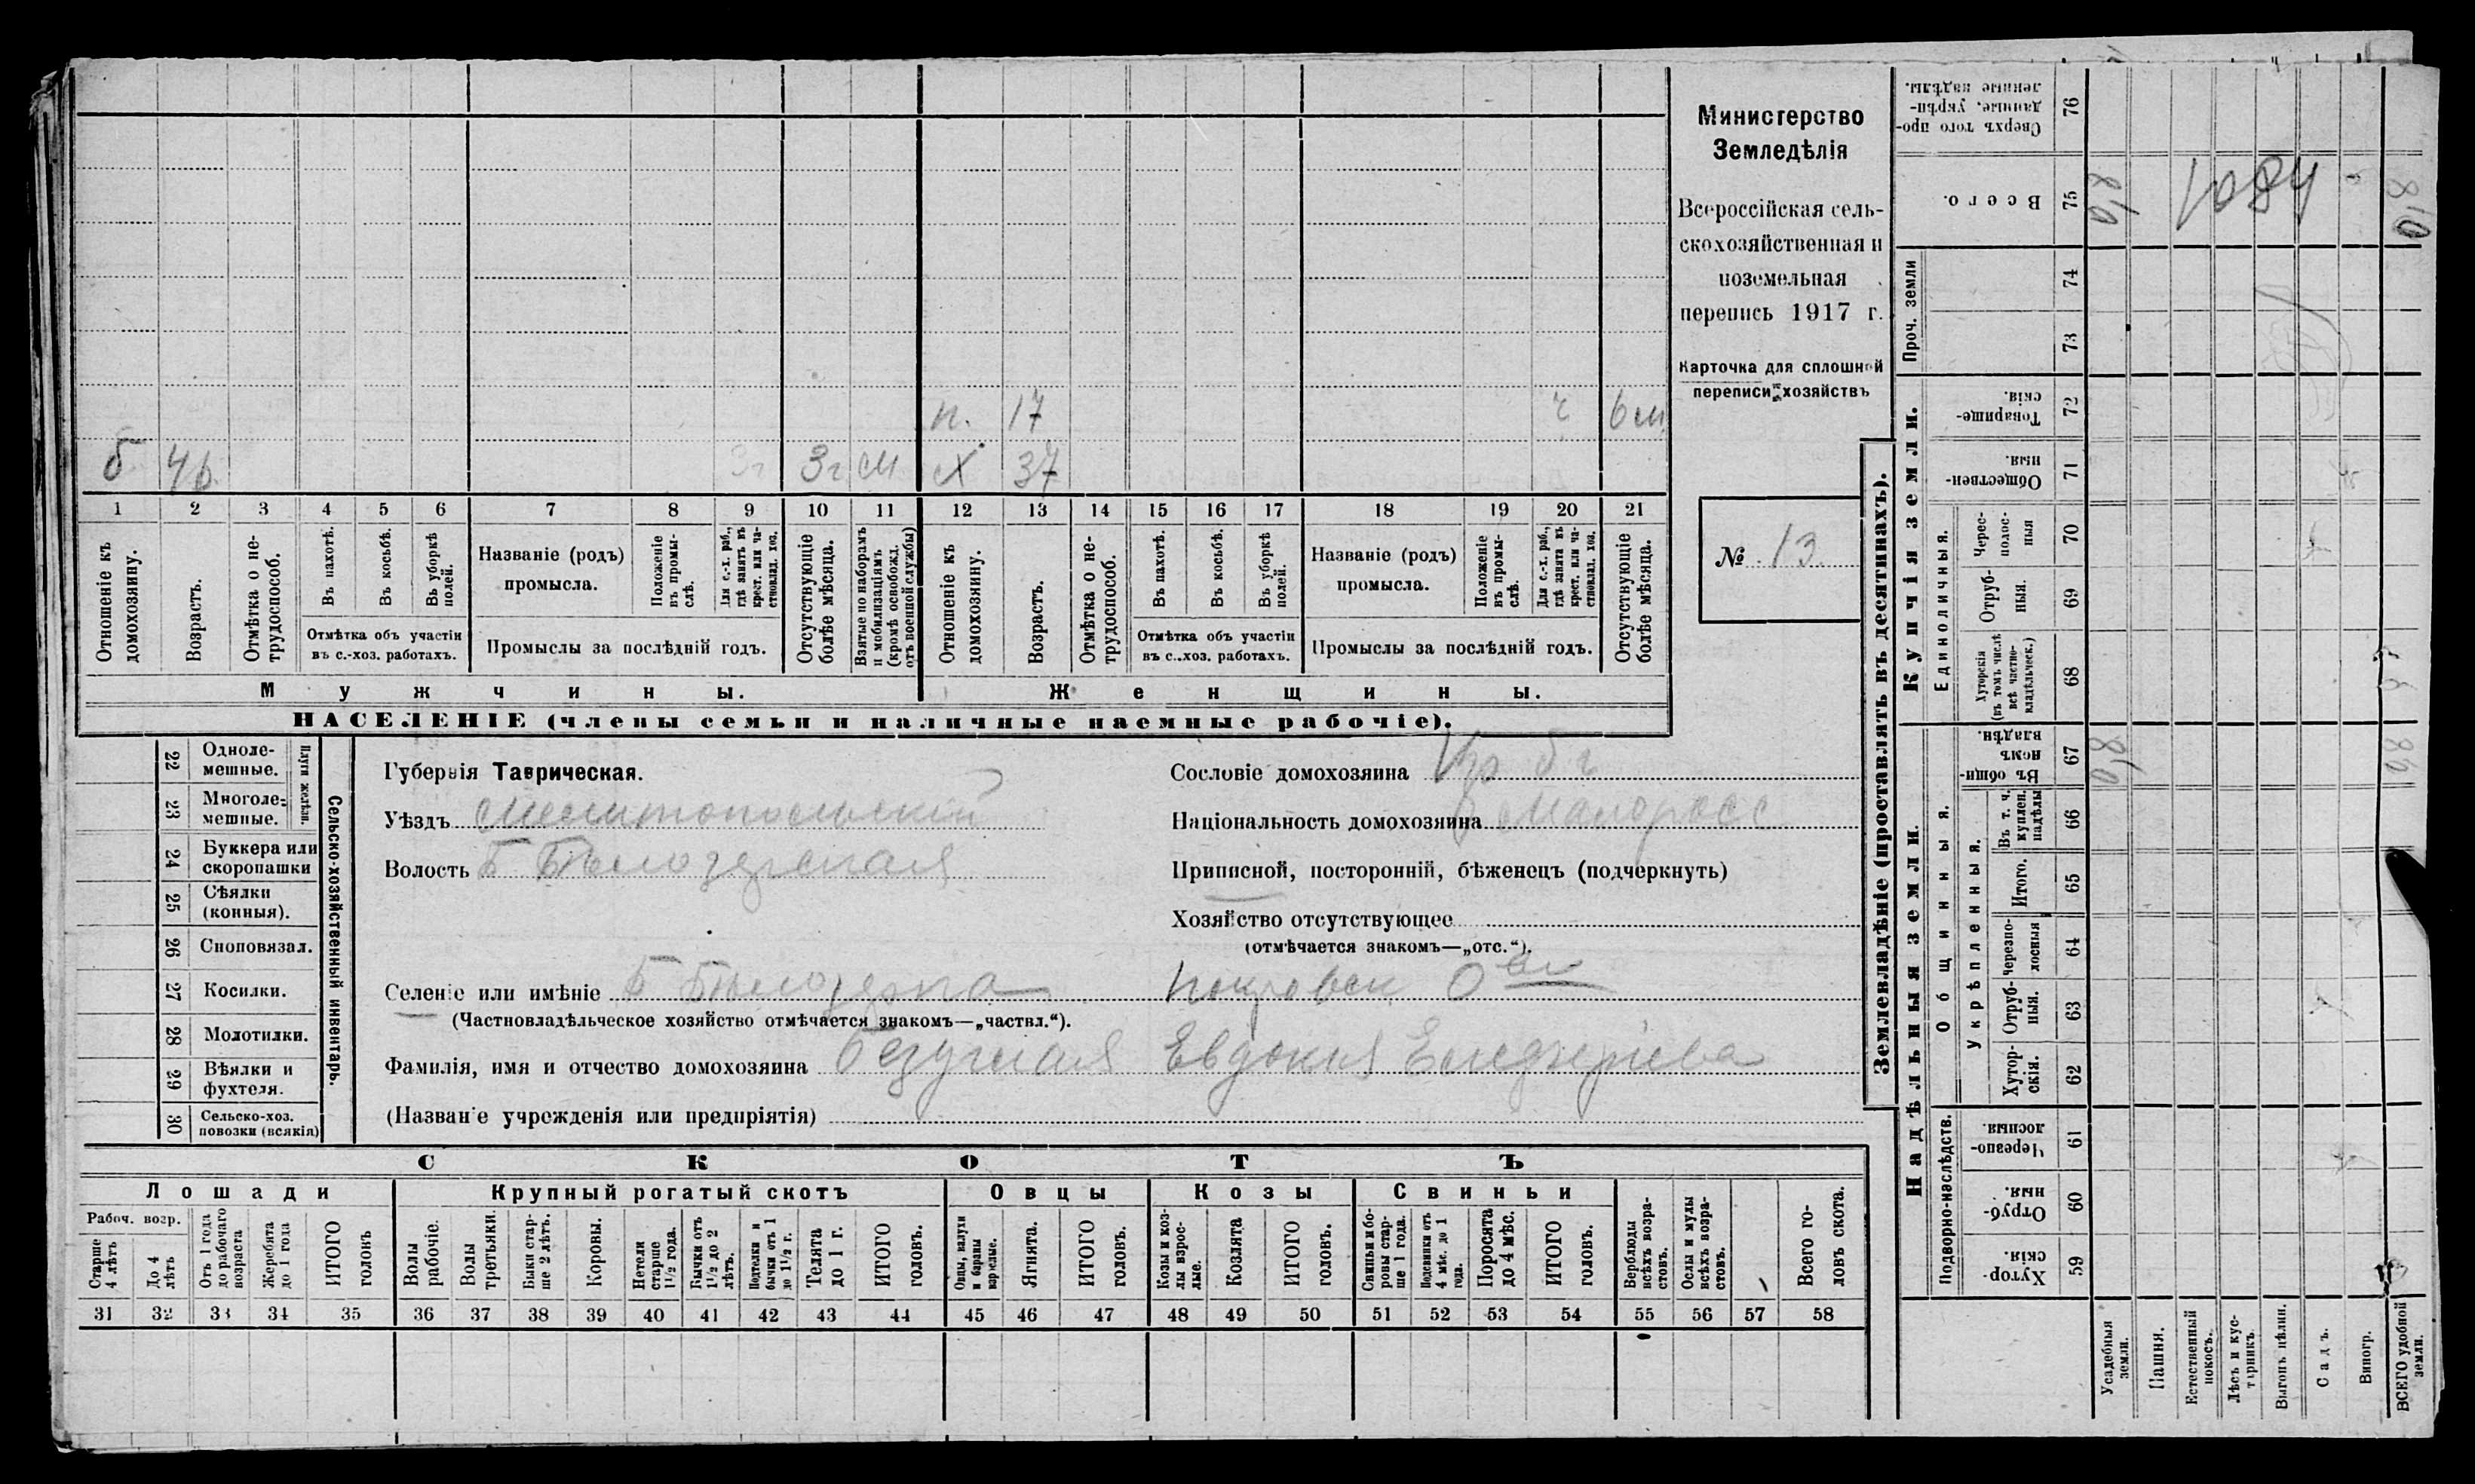 п. 17 ч 6 м
б 46 3г 3г м х 37
1 2 3 4 5 6 7 8 9 10 11 12 13 14 15 16 17 18 19 20 21
Отношеніе къ домохозяину.
Возрастъ.
Отмѣтка о не-трудоспособ.
Въ пахотѣ.
Въ косьбѣ.
Въ уборкѣ полей.
Отмѣтка объ участіи
въ с.-хоз. работахъ.
Названіе (родъ)
промысла.
Положеніе въ промы-слѣ.
Для с.-х. раб., гдѣ занятъ въ крест. или ча-стновлад. хоз.
Промыслы за послѣдній годъ.
Отсутствующіе болѣе мѣсяца.
Взятые по наборамъ и мобилизаціямъ (кромѣ освобожд. отъ военной службы)
Отношеніе къ домохозяину.
Возрастъ.
Отмѣтка о не-трудоспособ.
Въ пахотѣ.
Въ косьбѣ.
Въ уборкѣ полей.
Отмѣтка объ участіи
въ с.-хоз. работахъ.
Названіе (родъ)
промысла.
Положеніе въ промы-слѣ.
Для с.-х. раб., гдѣ занята въ крест. или ча-стновлад. хоз.
Промыслы за послѣдній годъ.
Отсутствующіе болѣе мѣсяца.
Мужчины. Женщины.
НАСЕЛЕНІЕ (члены семьи и наличные наемные рабочіе).
Министерство
Земледѣлія
Всероссійская сель-
скохозяйственная и
поземельная
перепись 1917 г.
Карточка для сплошной
переписи хозяйствъ
№ 13.
Сельско-хозяйственный инвентарь.
Плуги желѣзн.
22 Одноле-
мешные.
23 Многоле-
мешные.
24 Буккера или
скоропашки
25 Сѣялки
(конныя).
26 Сноповязал.
27 Косилки.
28 Молотилки.
29 Вѣялки и
фухтеля.
30 Сельско-хоз.
повозки (всякія)
Губернія Таврическая.
Уѣздъ Мелитопольскій
Волость Б Бѣлозерская
Селеніе или имѣніе Б Бѣлозерка Покровск О-ва
(Частновладѣльческое хозяйство отмѣчается знакомъ—„частвл.“).
Фамилія, имя и отчество домохозяина Безуглая Евдокия
(Названіе учрежденія или предпріятія)
Сословіе домохозяина
Національность домохозяина Малоросс
Приписной, посторонній, бѣженецъ (подчеркнуть)
Хозяйство отсутствующее
(отмѣчается знакомъ—„отс.“).
СКОТЪ
Лошади Крупный рогатый скотъ Овцы Козы Свиньи
Рабоч. возр.
Старше 4 лѣтъ
До 4 лѣтъ
Отъ 1 года до рабочаго возраста
Жеребята до 1 года
ИТОГО головъ
Волы рабочіе.
Волы третьяки.
Быки стар-ше 2 лѣтъ.
Коровы.
Нетели старше 1½ года.
Бычки отъ 1½ до 2 лѣтъ.
Подтелки и бычки отъ 1 до 1½ г.
Телята до 1 г.
ИТОГО головъ.
Овцы, валухи и бараны взрослые.
Ягнята.
ИТОГО головъ.
Козы и коз-лы взрос-лые.
Козлята
ИТОГО головъ.
Свиньи и бо-ровы стар-ше 1 года.
Подсвинки отъ 4 мѣс. до 1 года.
Поросята до 4 мѣс.
ИТОГО головъ.
Верблюды всѣхъ возра-стовъ.
Ослы и мулы всѣхъ возра-стовъ.
Всего го-ловъ скота.
31 32 33 34 35 36 37 38 39 40 41 42 43 44 45 46 47 48 49 50 51 52 53 54 55 56 57 58
Землевладѣніе (проставлять въ десятинахъ).
Купчія земли.
Надѣльныя земли.
Сверхъ того про-данные, укрѣп-ленные надѣлы. 76
Всего. 75
1084
Проч. земли 74
73
Товарище-скія. 72
Обществен-ныя. 71
Единоличныя.
Черес-полос-ныя 70
Отруб-ныя. 69
Хуторскія (въ томъ числѣ всѣ частно-владѣльческ.) 68
Общинныя.
Въ общин-номъ владѣн. 67
Укрѣпленныя.
Въ т. ч. куплен. надѣлы 66
Итого. 65
Черезпо-лосныя 64
Отруб-ныя. 63
Хутор-скія. 62
Подворно-наслѣдств.
Черезпо-лосныя. 61
Отруб-ныя. 60
Хутор-скія. 59
Усадебныя земли.
Пашня.
Естественный покосъ.
Лѣсъ и кус-тарникъ.
Выгонъ цѣлин.
Садъ.
Виногр.
ВСЕГО удобной земли.